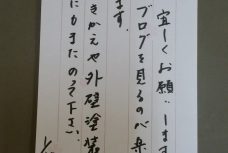 宜しくお願いします
ブログを見るのが楽
ます。
きかえや外壁塗装
にものって下さい。